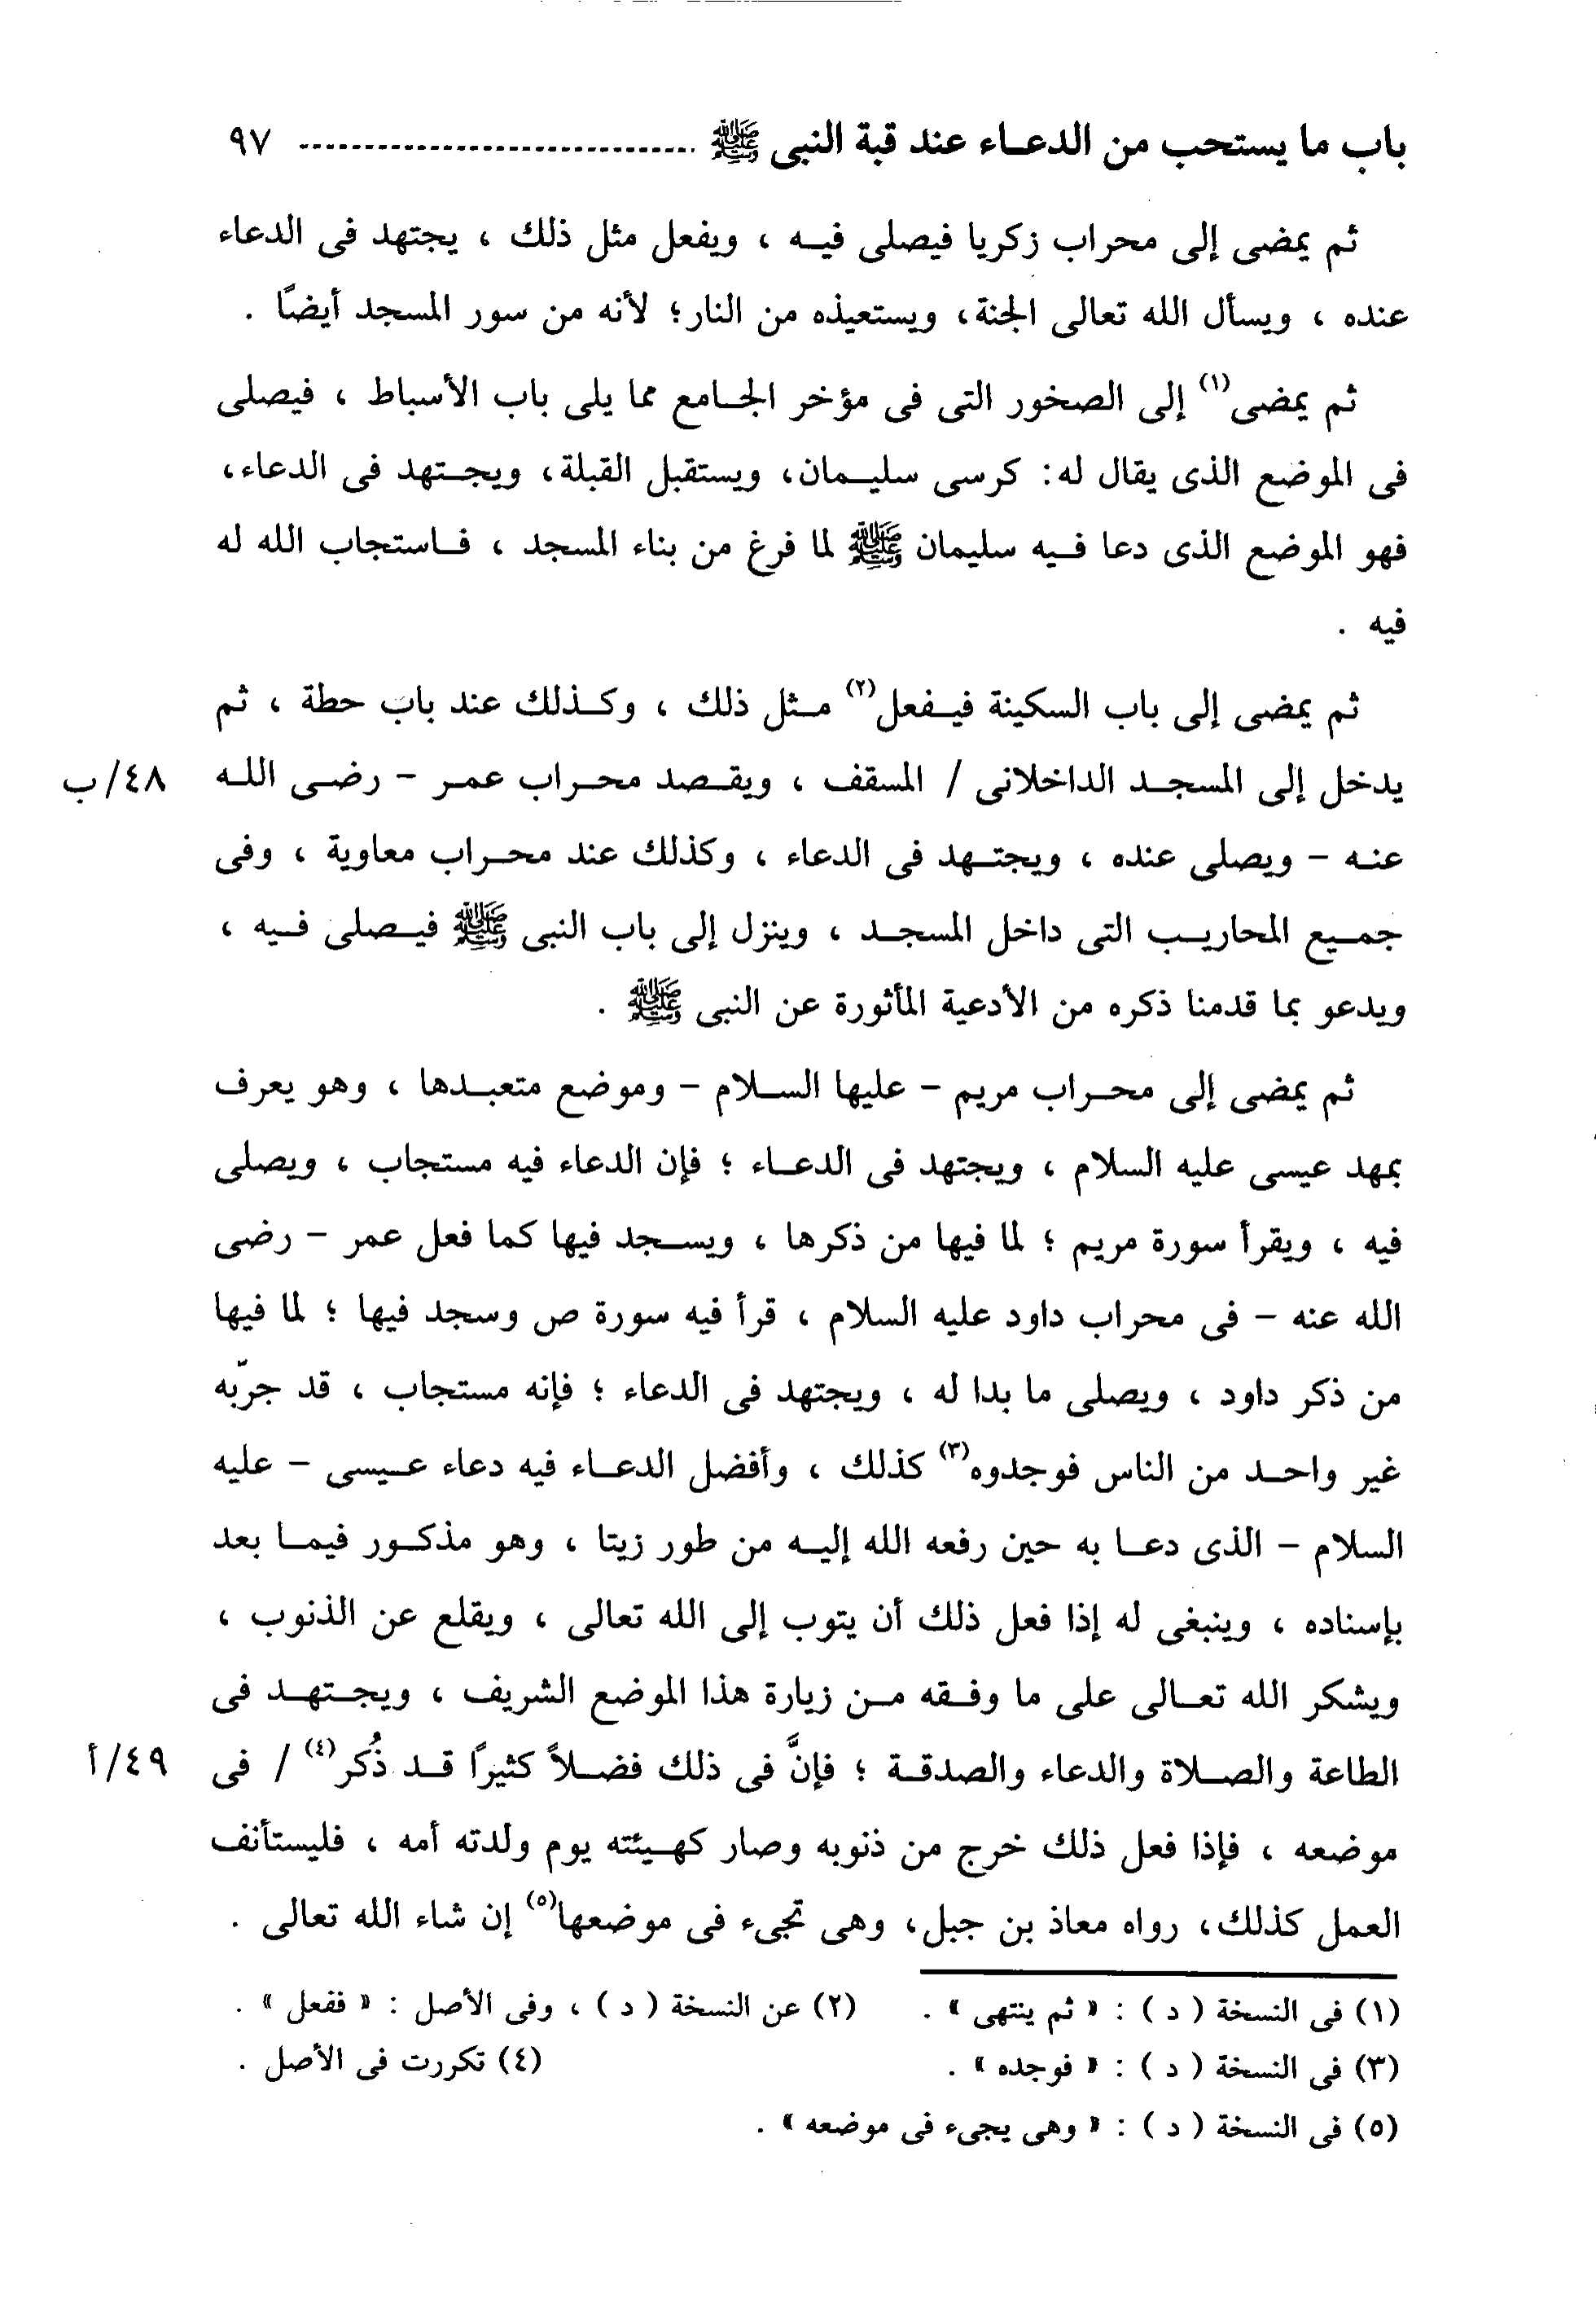 باب ما يستحب من الدعاء عند قبة النبى ﷺ ............................ ٩٧
ثم يمضى إلى محراب زكريا فيصلى فيه ، ويفعل مثل ذلك ، يجتهد فى الدعاء
عنده ، ويسأل الله تعالى الجنة، ويستعيذه من النار؛ لأنه من سور المسجد أيضًا .
ثم يمضى(١) إلى الصخور التى فى مؤخر الجامع مما يلى باب الأسباط ، فيصلى
فى الموضع الذى يقال له: كرسى سليمان، ويستقبل القبلة، ويجتهد فى الدعاء،
فهو الموضع الذى دعا فيه سليمان ﷺ لما فرغ من بناء المسجد ، فاستجاب الله له
فيه .
ثم يمضى إلى باب السكينة فيفعل(٢) مثل ذلك ، وكذلك عند باب حطة ، ثم
يدخل إلى المسجد الداخلانى / المسقف ، ويقصد محراب عمر - رضى الله ٤٨/ب
عنه - ويصلى عنده ، ويجتهد فى الدعاء ، وكذلك عند محراب معاوية ، وفى
جميع المحاريب التى داخل المسجد ، وينزل إلى باب النبى ﷺ فيصلى فيه ،
ويدعو بما قدمنا ذكره من الأدعية المأثورة عن النبى ﷺ .
ثم يمضى إلى محراب مريم - عليها السلام - وموضع متعبدها ، وهو يعرف
بمهد عيسى عليه السلام ، ويجتهد فى الدعاء ؛ فإن الدعاء فيه مستجاب ، ويصلى
فيه ، ويقرأ سورة مريم ؛ لما فيها من ذكرها ، ويسجد فيها كما فعل عمر - رضى
الله عنه - فى محراب داود عليه السلام ، قرأ فيه سورة ص وسجد فيها ؛ لما فيها
من ذكر داود ، ويصلى ما بدا له ، ويجتهد فى الدعاء ؛ فإنه مستجاب ، قد جرّبه
غير واحد من الناس فوجدوه(٣) كذلك ، وأفضل الدعاء فيه دعاء عيسى - عليه
السلام - الذى دعا به حين رفعه الله إليه من طور زيتا ، وهو مذكور فيما بعد
بإسناده ، وينبغى له إذا فعل ذلك أن يتوب إلى الله تعالى ، ويقلع عن الذنوب ،
ويشكر الله تعالى على ما وفقه من زيارة هذا الموضع الشريف ، ويجتهد فى
الطاعة والصلاة والدعاء والصدقة ؛ فإنَّ فى ذلك فضلاً كثيرًا قد ذُكر(٤) / فى ٤٩/أ
موضعه ، فإذا فعل ذلك خرج من ذنوبه وصار كهيئته يوم ولدته أمه ، فليستأنف
العمل كذلك، رواه معاذ بن جبل، وهى تجىء فى موضعها(٥) إن شاء الله تعالى .
(١) فى النسخة ( د ) : « ثم ينتهى » . (٢) عن النسخة ( د ) ، وفى الأصل : « ففعل » .
(٣) فى النسخة ( د ) : « فوجده » . (٤) تكررت فى الأصل .
(٥) فى النسخة ( د ) : « وهى يجىء فى موضعه » .